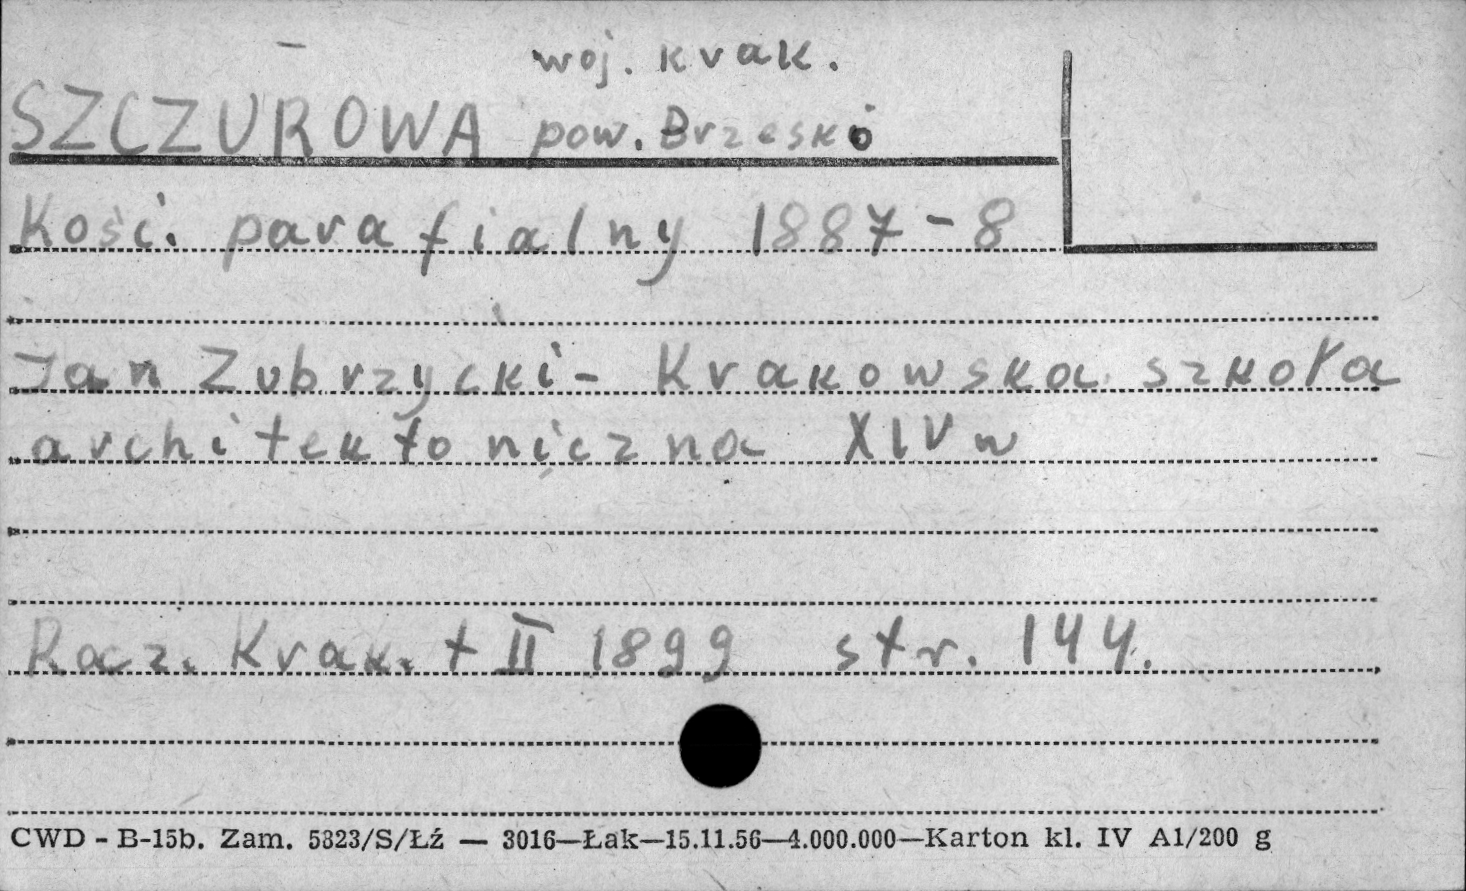 woj. krak.
SZCZUROWA pow. Brzesko
Kość. parafialny 1887-8
Jan Zubrzycki - Krakowska szkoła
architektoniczna XIV w
Rocz. Krak. t II 1899 str. 144.
CWD - B-15b. Zam. 5323/S/Łź — 3016—Łak—15.11.56—4.000.000—Karton kl. IV A1/200 g